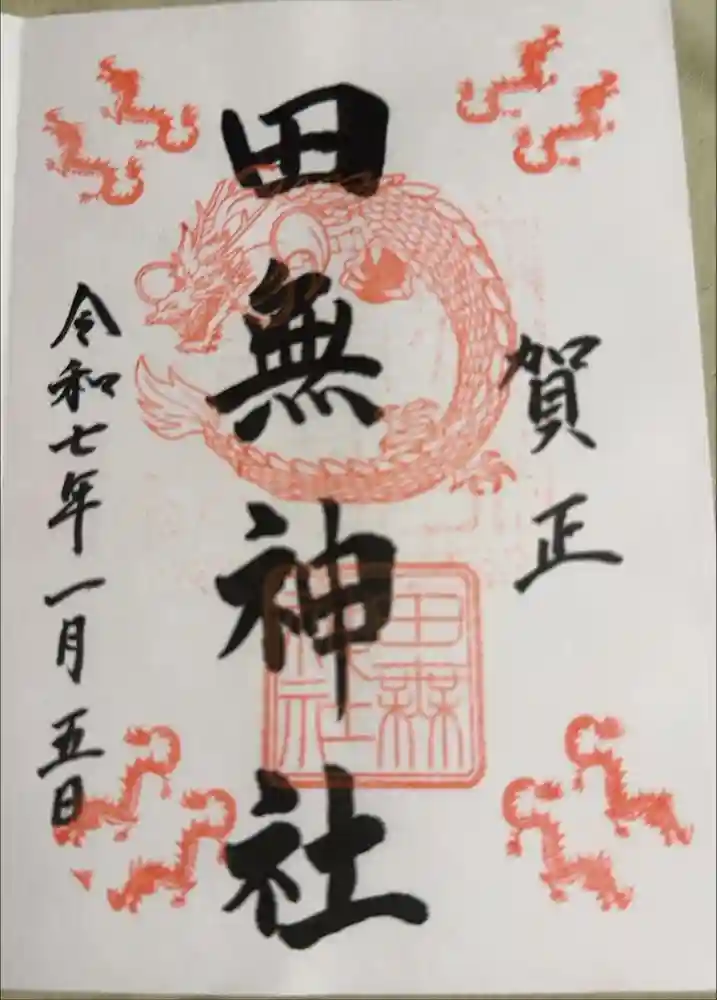 賀正
田無神社
令和七年一月五日
田無
神社